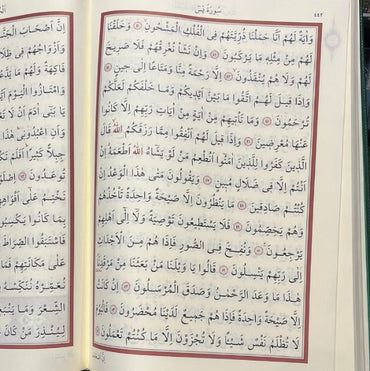 ٤٤٢
سُورَةُ يٰسٓ
وَاٰيَةٌ لَهُمْ اَنَّا حَمَلْنَا ذُرِّيَّتَهُمْ فِي الْفُلْكِ الْمَشْحُونِۙ ﴿٤١﴾ وَخَلَقْنَا
لَهُمْ مِنْ مِثْلِهِ مَا يَرْكَبُونَ ﴿٤٢﴾ وَاِنْ نَشَأْ نُغْرِقْهُمْ فَلَا صَرِيخَ
لَهُمْ وَلَا هُمْ يُنْقَذُونَۙ ﴿٤٣﴾ اِلَّا رَحْمَةً مِنَّا وَمَتَاعًا اِلٰى حِينٍ ﴿٤٤﴾
وَاِذَا قِيلَ لَهُمُ اتَّقُوا مَا بَيْنَ اَيْدِيكُمْ وَمَا خَلْفَكُمْ لَعَلَّكُمْ
تُرْحَمُونَ ﴿٤٥﴾ وَمَا تَأْتِيهِمْ مِنْ اٰيَةٍ مِنْ اٰيَاتِ رَبِّهِمْ اِلَّا كَانُوا
عَنْهَا مُعْرِضِينَ ﴿٤٦﴾ وَاِذَا قِيلَ لَهُمْ اَنْفِقُوا مِمَّا رَزَقَكُمُ اللّٰهُۙ قَالَ
الَّذِينَ كَفَرُوا لِلَّذِينَ اٰمَنُوا اَنُطْعِمُ مَنْ لَوْ يَشَاءُ اللّٰهُ اَطْعَمَهُۗ اِنْ
اَنْتُمْ اِلَّا فِي ضَلَالٍ مُبِينٍ ﴿٤٧﴾ وَيَقُولُونَ مَتٰى هٰذَا الْوَعْدُ اِنْ
كُنْتُمْ صَادِقِينَ ﴿٤٨﴾ مَا يَنْظُرُونَ اِلَّا صَيْحَةً وَاحِدَةً تَأْخُذُهُمْ
وَهُمْ يَخِصِّمُونَ ﴿٤٩﴾ فَلَا يَسْتَطِيعُونَ تَوْصِيَةً وَلَا اِلٰى اَهْلِهِمْ
يَرْجِعُونَ۟ ﴿٥٠﴾ وَنُفِخَ فِي الصُّورِ فَاِذَا هُمْ مِنَ الْاَجْدَاثِ
اِلٰى رَبِّهِمْ يَنْسِلُونَ ﴿٥١﴾ قَالُوا يَا وَيْلَنَا مَنْ بَعَثَنَا مِنْ مَرْقَدِنَا
هٰذَا مَا وَعَدَ الرَّحْمٰنُ وَصَدَقَ الْمُرْسَلُونَ ﴿٥٢﴾ اِنْ كَانَتْ
اِلَّا صَيْحَةً وَاحِدَةً فَاِذَا هُمْ جَمِيعٌ لَدَيْنَا مُحْضَرُونَ ﴿٥٣﴾ فَالْيَوْمَ
لَا تُظْلَمُ نَفْسٌ شَيْـًٔا وَلَا تُجْزَوْنَ اِلَّا مَا كُنْتُمْ تَعْمَلُونَ ﴿٥٤﴾
اِنَّ اَصْحَابَ
وَاَزْوَاجُهُمْ
فَاكِهَةٌ وَلَهُمْ مَا
وَامْتَازُوا الْيَوْمَ
يَا بَنِي اٰدَمَ اَنْ لَا
وَاَنِ اعْبُدُونِي هٰذَا
جِبِلًّا كَثِيرًا اَفَلَمْ
تُوعَدُونَ
نَخْتِمُ عَلٰى
بِمَا كَانُوا يَكْسِبُونَ
فَاسْتَبَقُوا الصِّرَاطَ
عَلٰى مَكَانَتِهِمْ
نُعَمِّرْهُ نُنَكِّسْهُ
الشِّعْرَ وَمَا
لِيُنْذِرَ مَنْ كَانَ